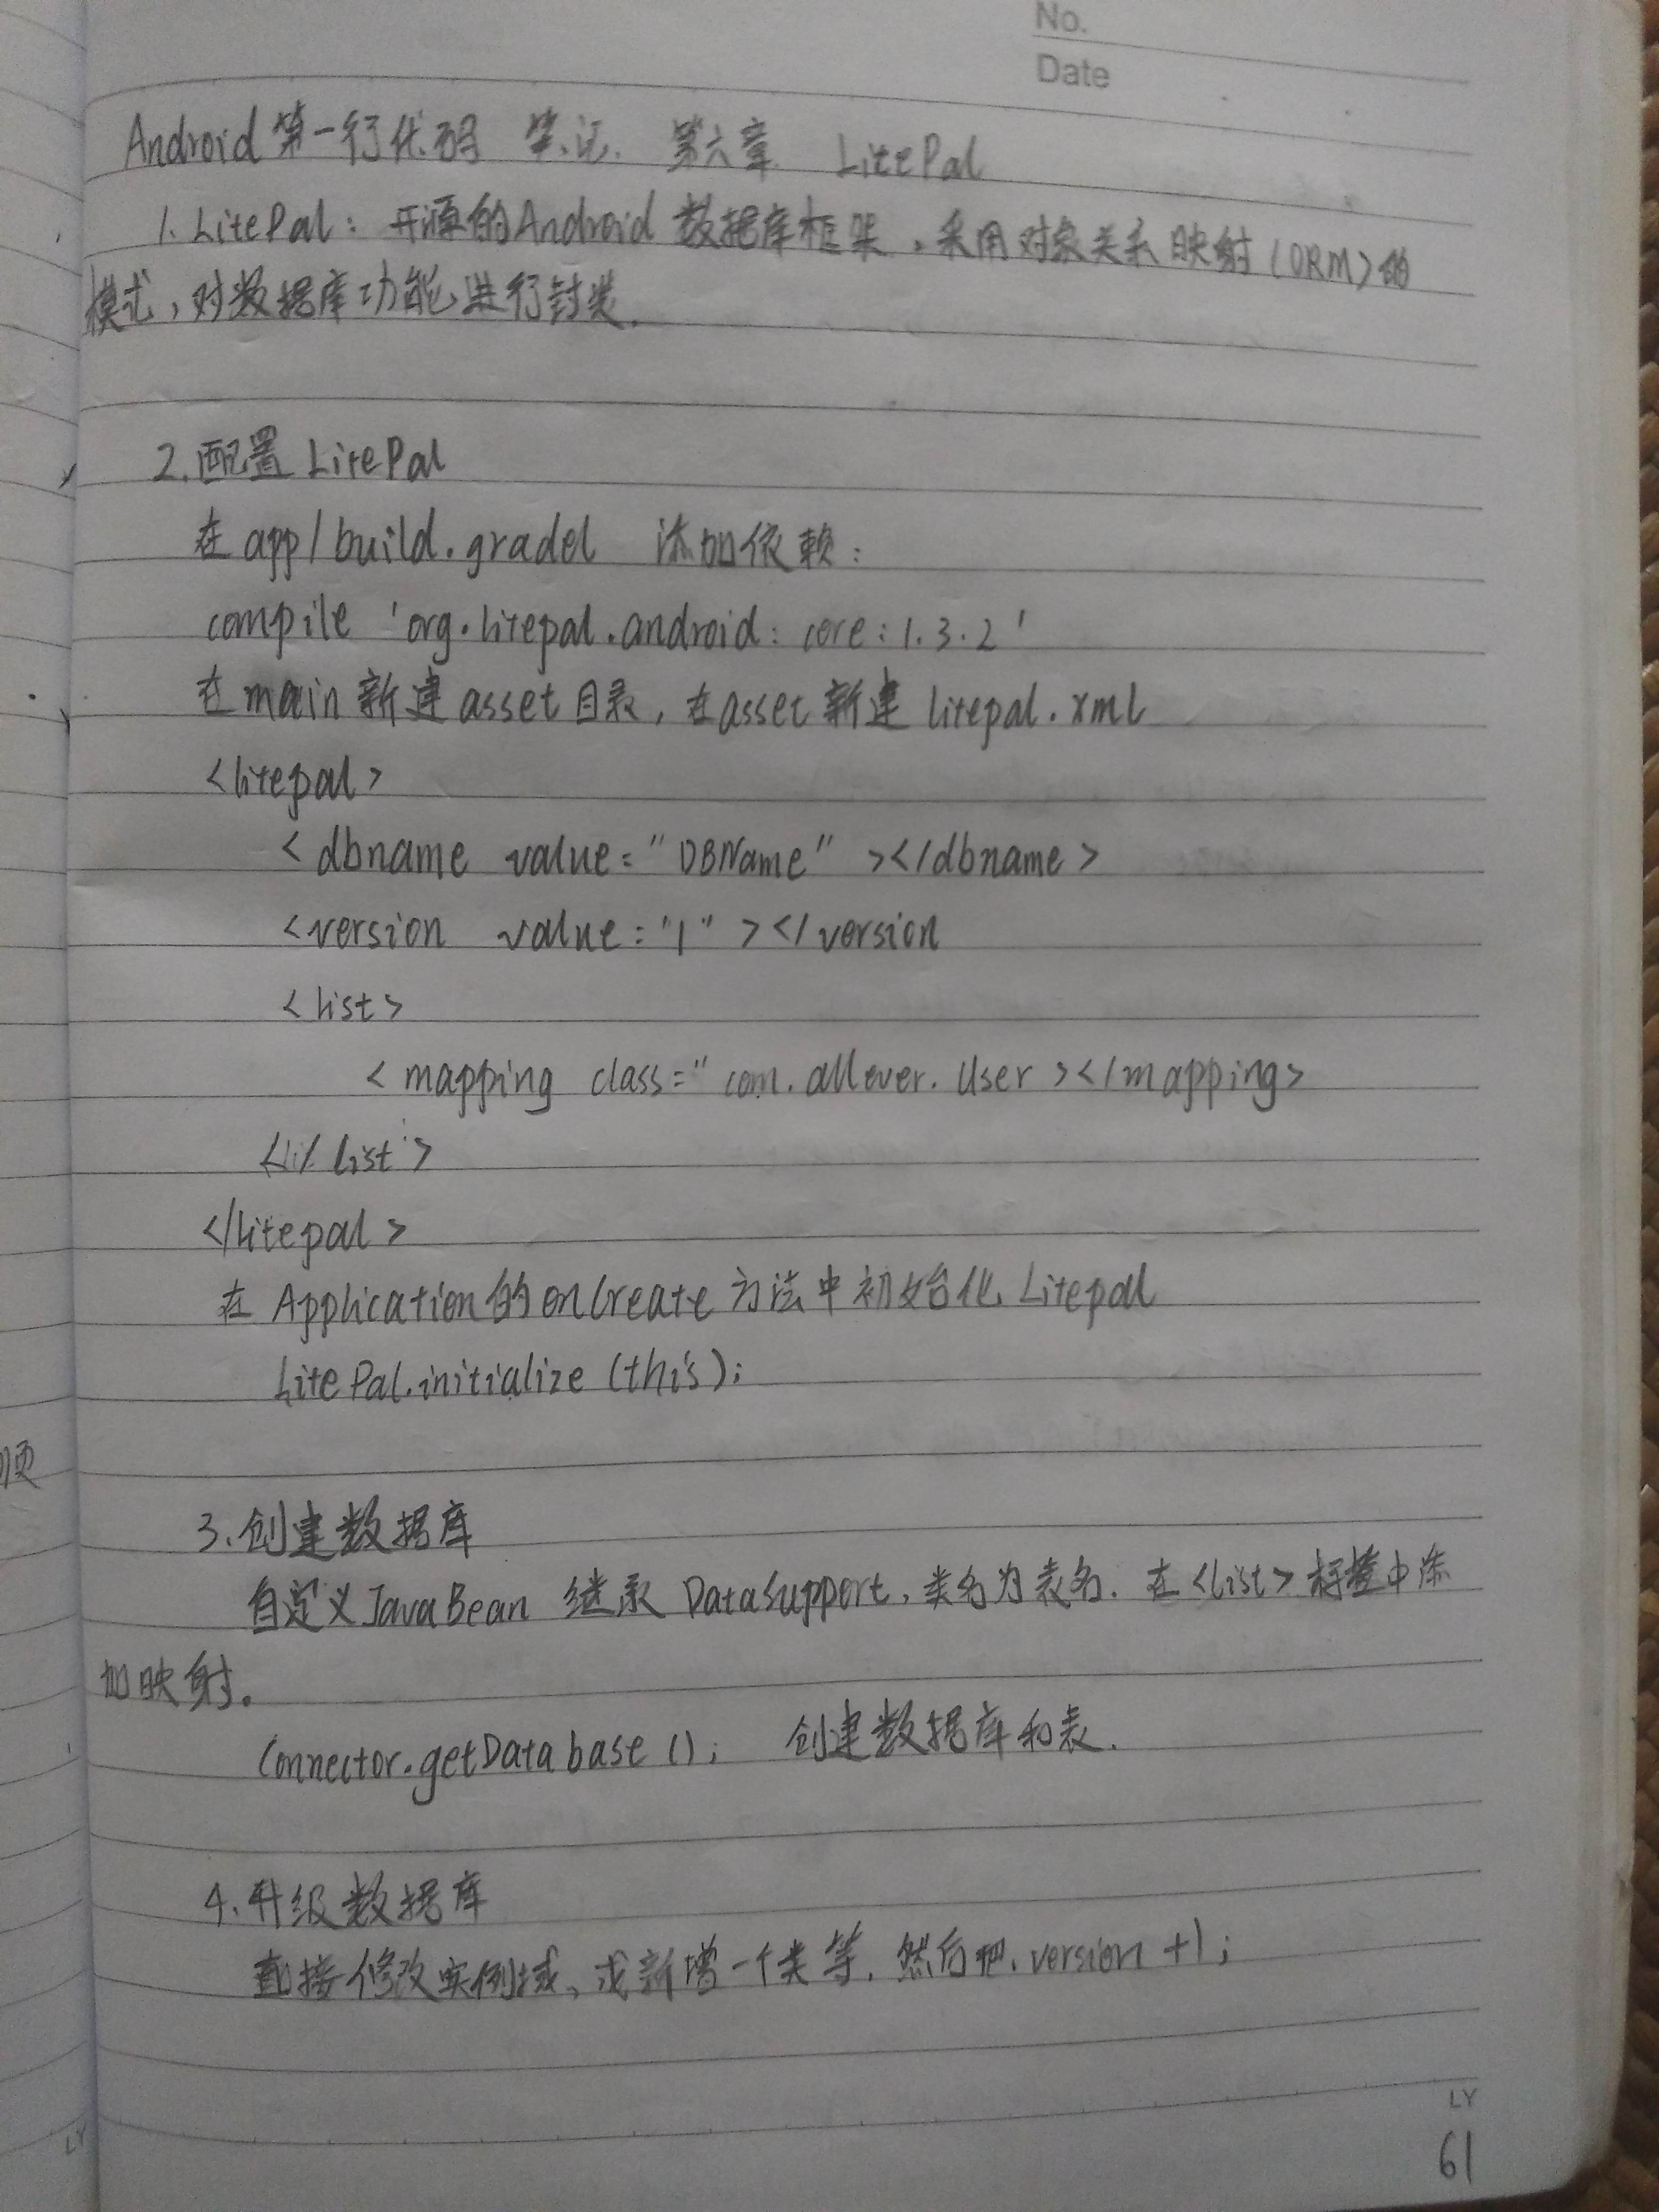 No.
Date
Android 第一行代码 笔记. 第六章 LitePal
1. LitePal: 开源的Android 数据库框架,采用对象关系映射(ORM)的
模式,对数据库功能进行封装.
2.配置 LitePal
在 app/build.gradel 添加依赖:
compile 'org.litepal.android: core:1.3.2'
在main 新建 asset 目录,在asset 新建 litepal.xml
<litepal>
<dbname value="DBName" ></dbname>
<version value="1" ></version
<list>
<mapping class="com.allever.User ></mapping>
</list>
</litepal>
在 Application的 onCreate 方法中初始化 Litepal
LitePal.initialize (this);
顺
3.创建数据库
自定义JavaBean 继承 DataSupport,类名为表名. 在<list>标签中添
加映射。
Connector.getDatabase (); 创建数据库和表.
4.升级数据库
直接修改实例域、或新增一个类等,然后把.version +1;
LY
LY
61